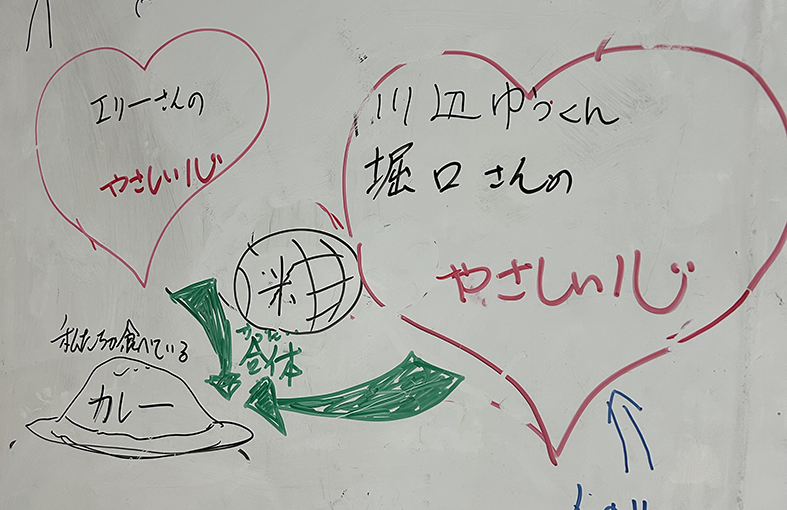 エリーさんの
やさしい心
川辺ゆうくん
堀口さんの
やさしい心
米
がったい
合体
私たちが食べている
カレー